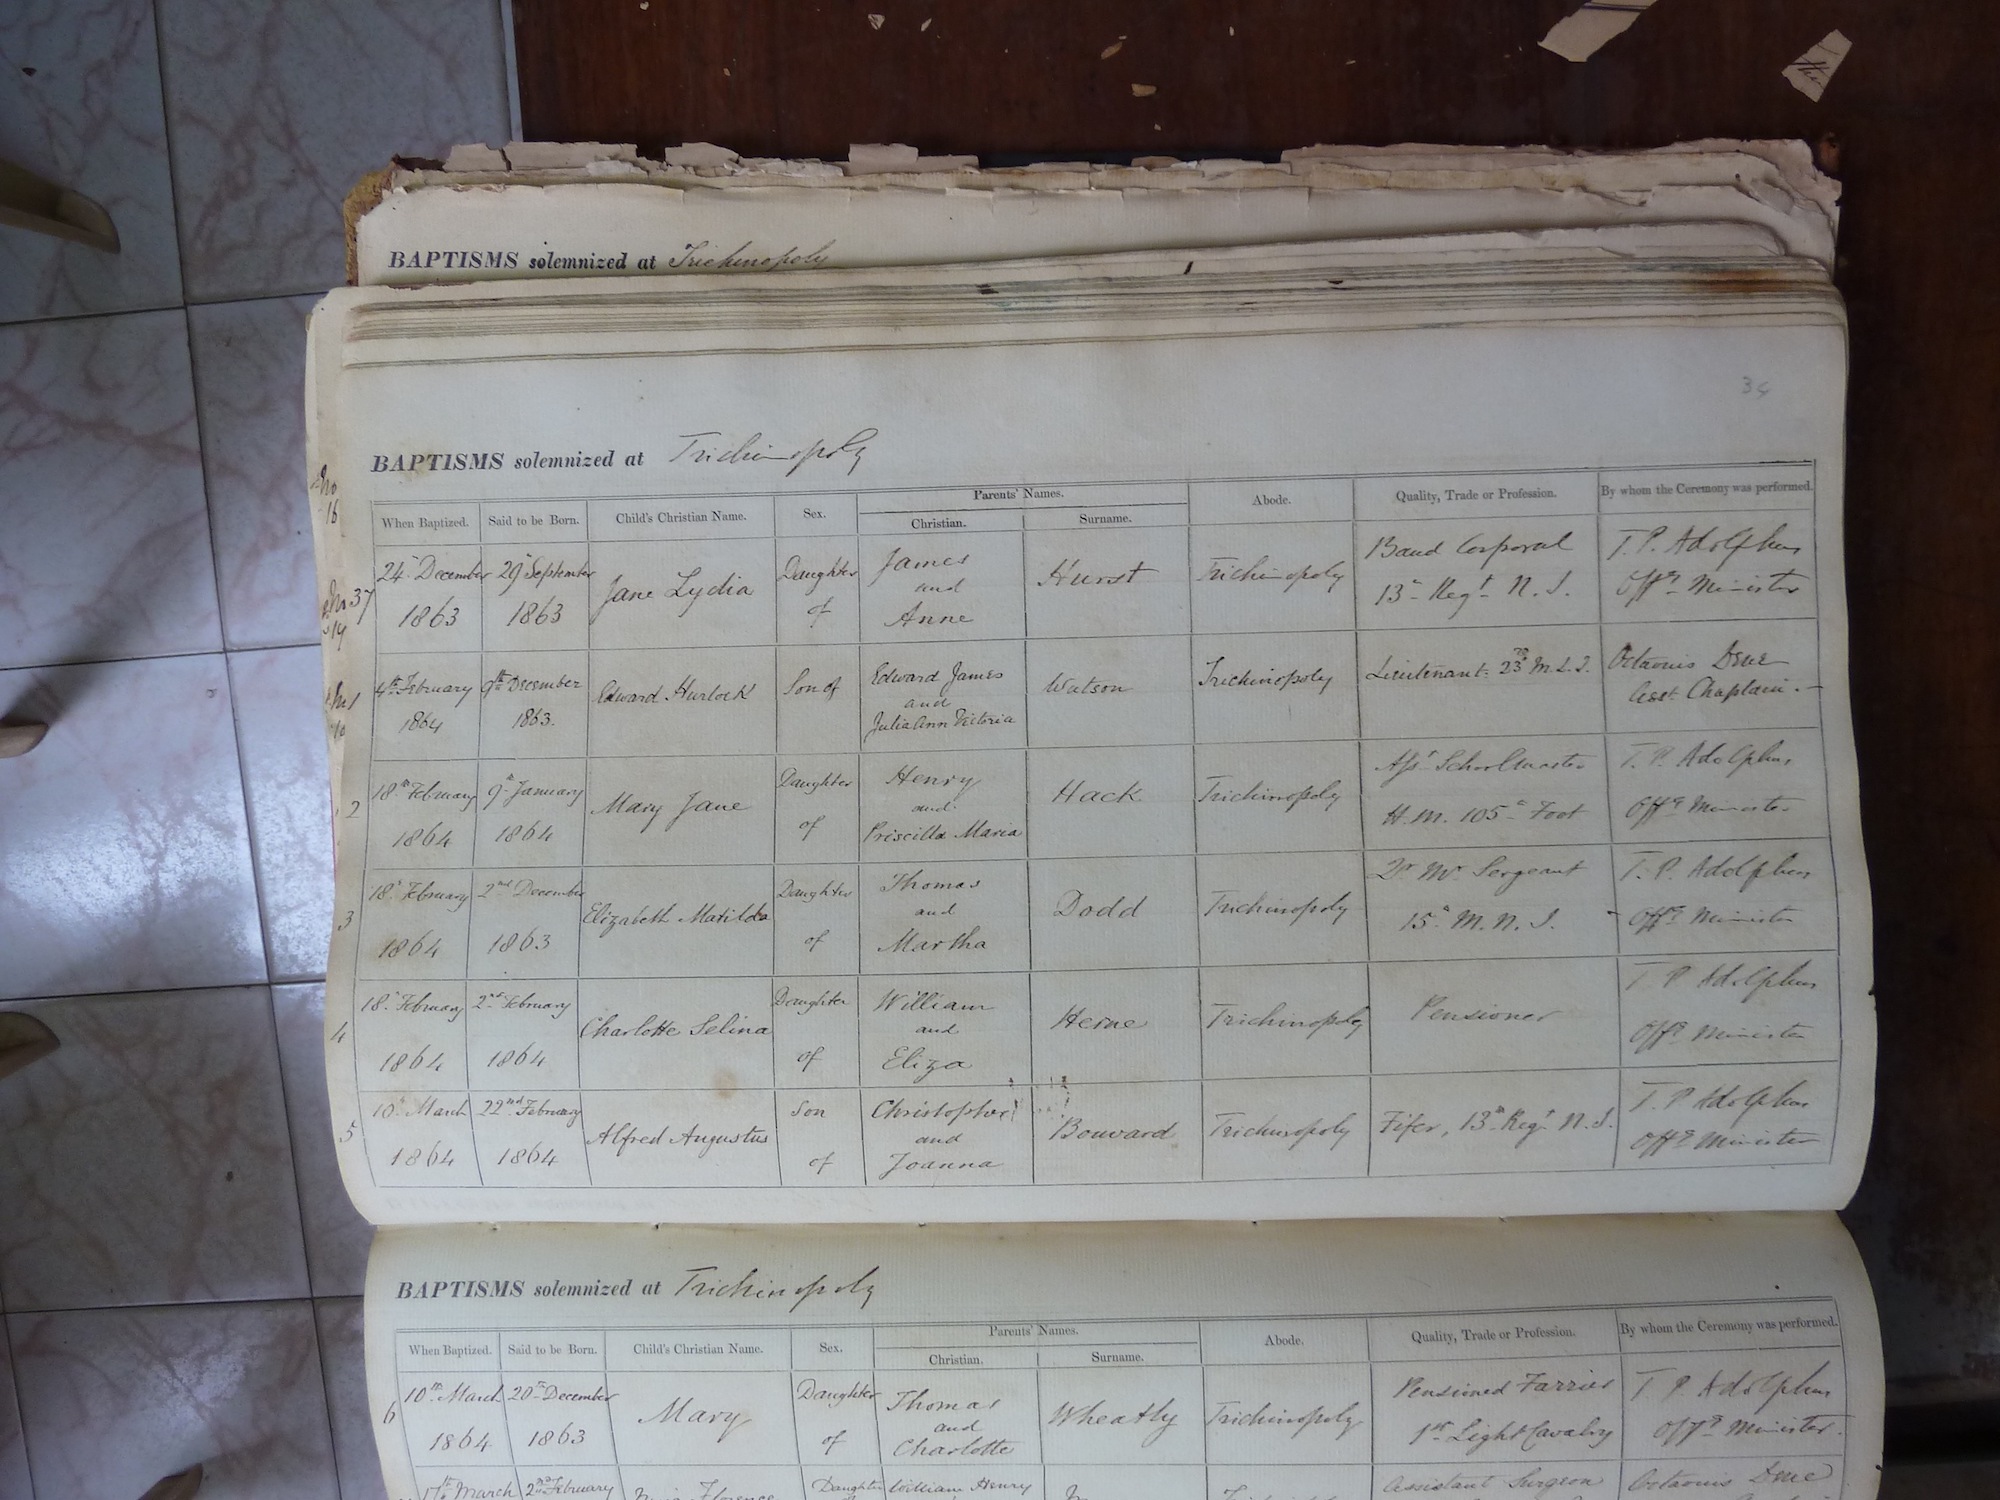 BAPTISMS solemnized at Trichinopoly
34
BAPTISMS solemnized at Trichinopoly
When Baptized. Said to be Born. Child's Christian Name. Sex. Parents' Names. Christian. Surname. Abode. Quality, Trade or Profession. By whom the Ceremony was performed.
No 37
24th December 1863
29 September 1863
Jane Lydia
Daughter of
James and Anne
Hurst
Trichinopoly
Band Corporal
13th Regt N. I.
T. P. Adolphus
Offg Minister
4th February 1864
9th December 1863.
Edward Hurlock
Son of
Edward James and Julia Ann Victoria
Watson
Trichinopoly
Lieutenant 23rd M. L. I.
Octavius Dene
Asst. Chaplain.
2
18th February 1864
9th January 1864
Mary Jane
Daughter of
Henry and Priscilla Maria
Hack
Trichinopoly
Asst Schoolmaster
H. M. 105th Foot
T. P. Adolphus
Offg Minister
3
18th February 1864
2nd December 1863
Elizabeth Matilda
Daughter of
Thomas and Martha
Dodd
Trichinopoly
Qr Mr Sergeant
15th M. N. I.
T. P. Adolphus
Offg Minister
4
18th February 1864
2nd February 1864
Charlotte Selina
Daughter of
William and Eliza
Herne
Trichinopoly
Pensioner
T. P. Adolphus
Offg Minister
5
10th March 1864
22nd February 1864
Alfred Augustus
Son of
Christopher and Joanna
Bouward
Trichinopoly
Fifer, 13th Regt N. I.
T. P. Adolphus
Offg Minister
BAPTISMS solemnized at Trichinopoly
When Baptized. Said to be Born. Child's Christian Name. Sex. Parents' Names. Christian. Surname. Abode. Quality, Trade or Profession. By whom the Ceremony was performed.
6
10th March 1864
20th December 1863
Mary
Daughter of
Thomas and Charlotte
Wheatly
Trichinopoly
Pensioned Farrier
1st Light Cavalry
T. P. Adolphus
Offg Minister.
17th March
2nd February
Florence
Daughter
William Henry
Assistant Surgeon
Octavius Dene